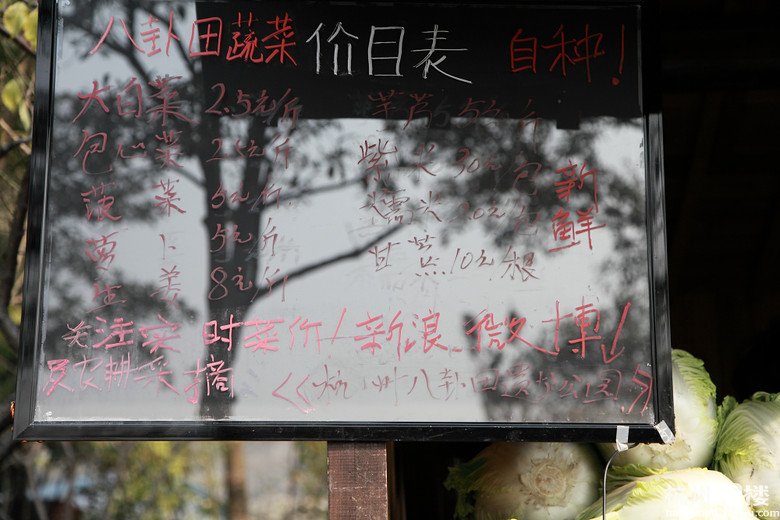 八卦田蔬菜价目表 自种!
大白菜 2.5元/斤 芋芳 5元/斤
包心菜 2.5元/斤 紫米 30元/包
菠菜 5元/斤 20元/包
萝卜 5元/斤 甘蔗 10元/根
生姜 8元/斤
新鲜
关注实时菜价!新浪 微博↓
及农耕采摘 《杭州八卦田遗址公园》